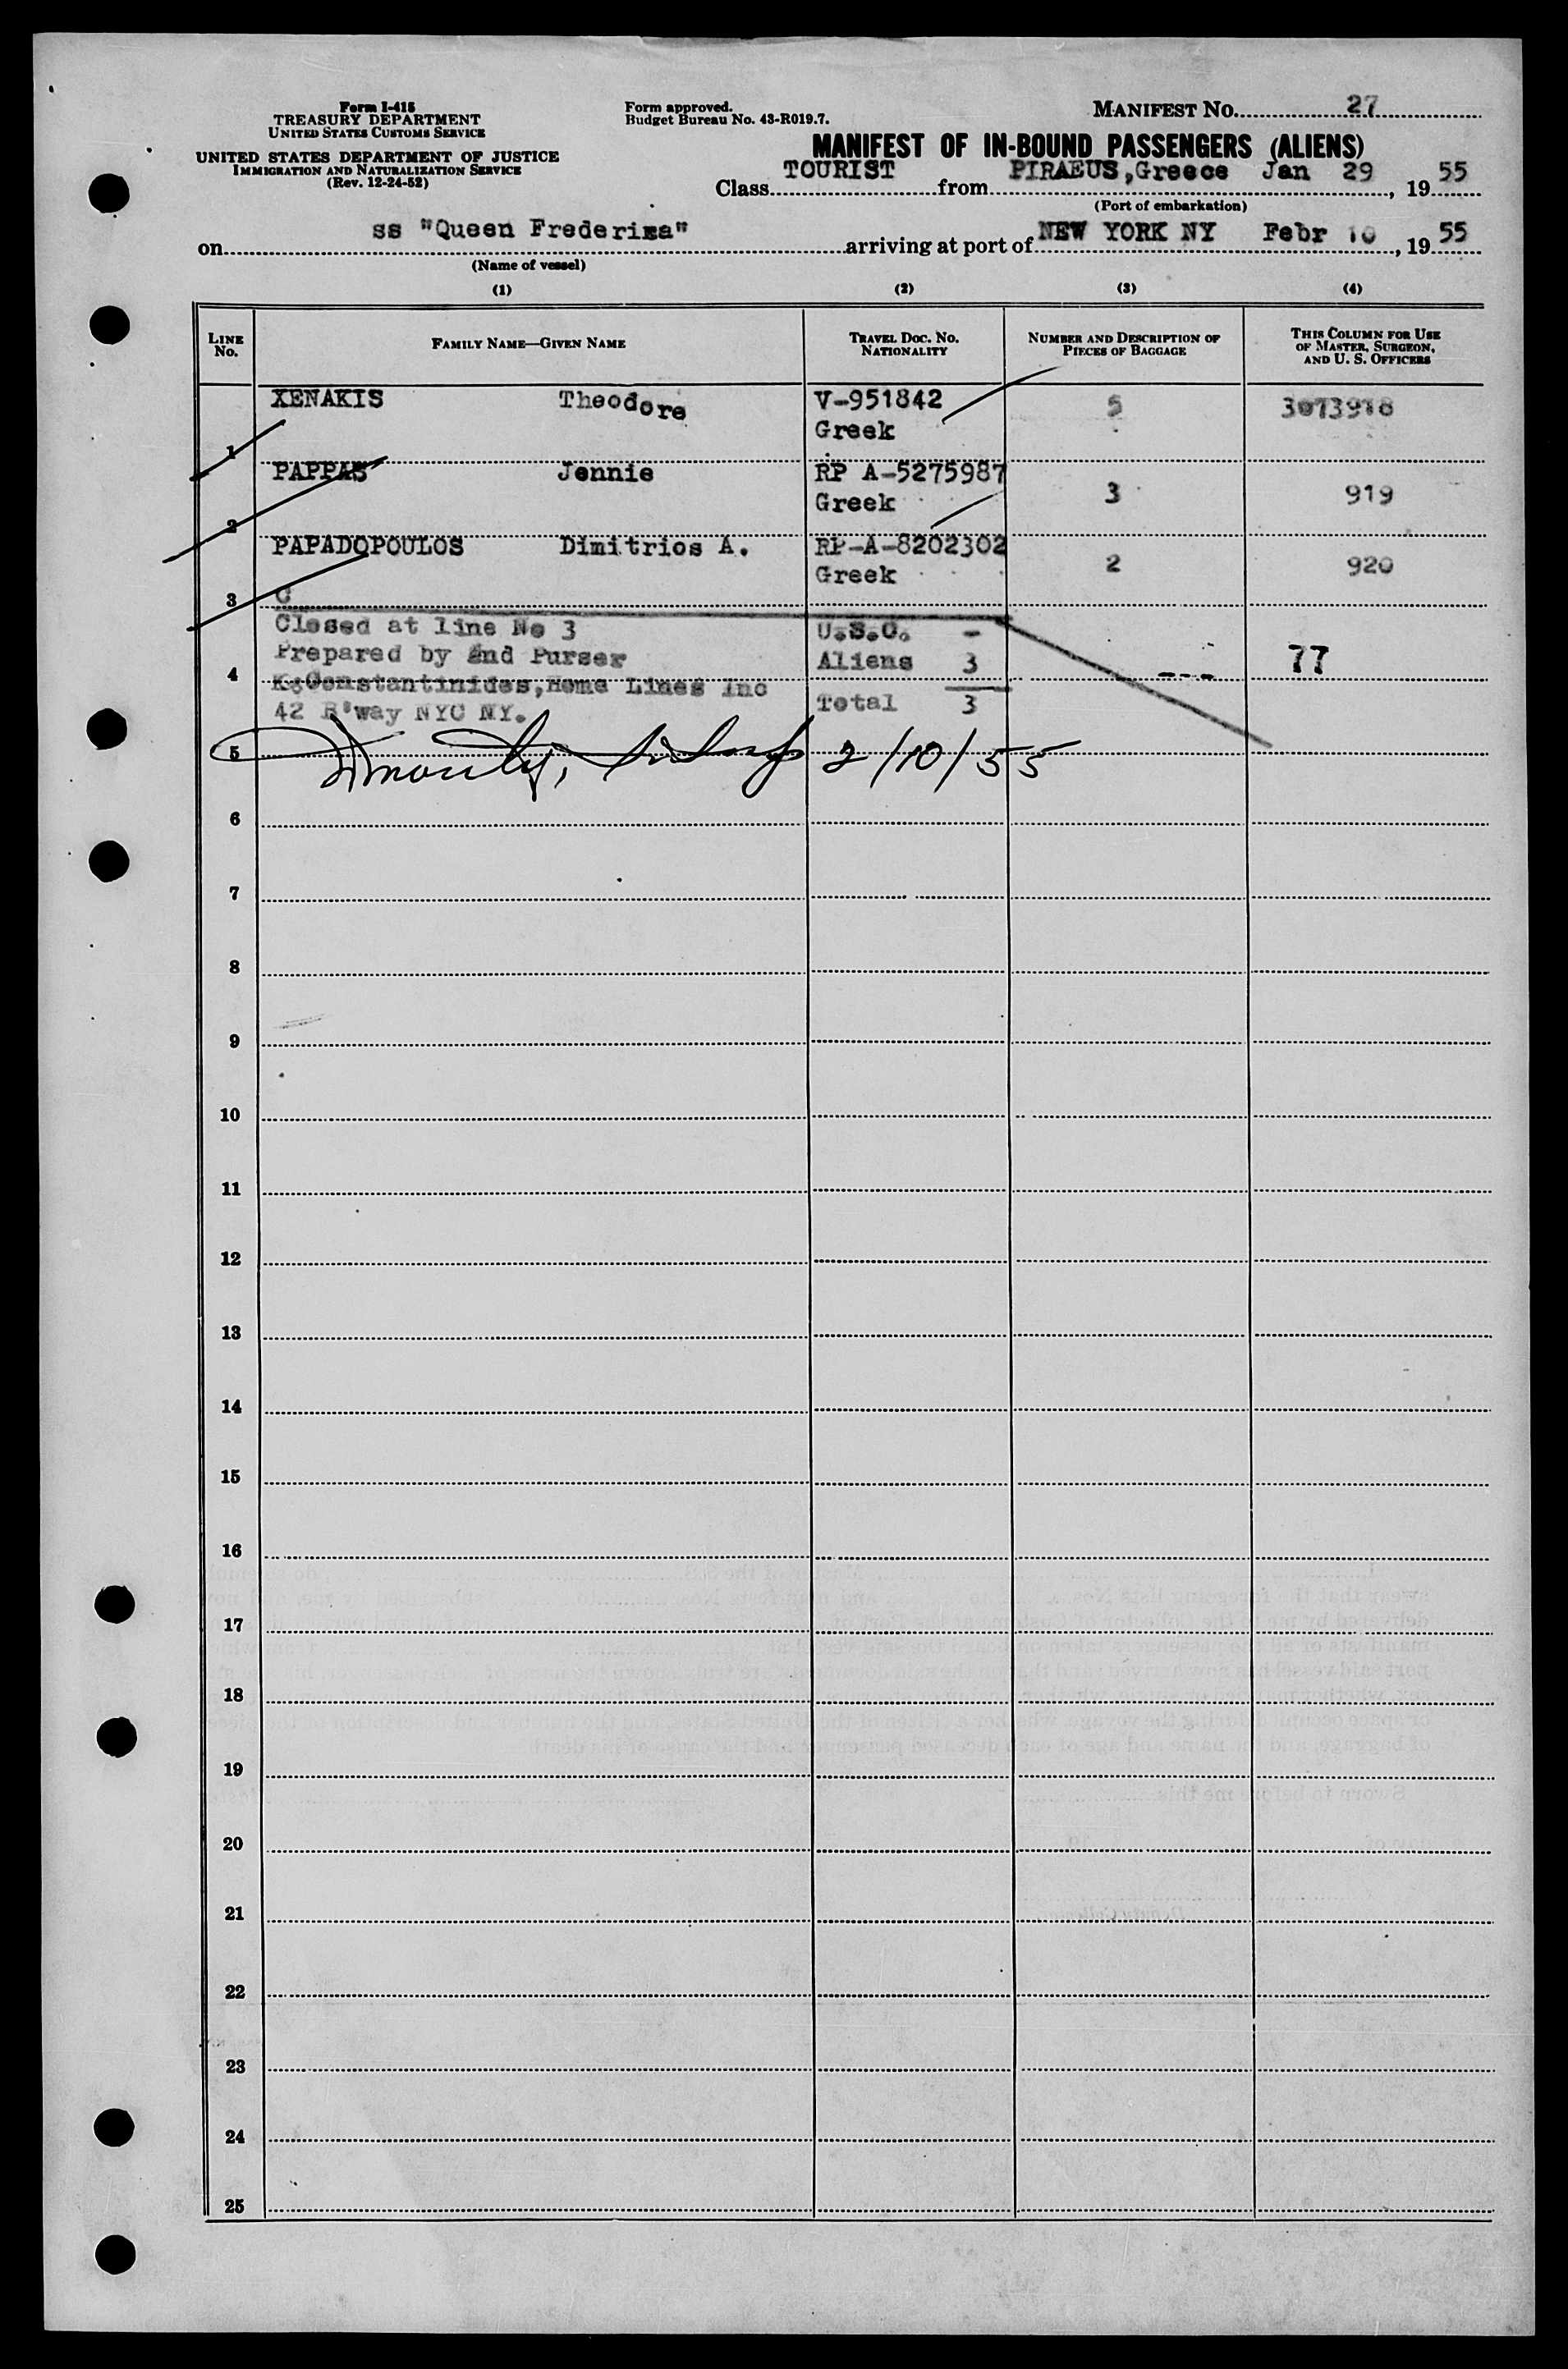 Form I-415
TREASURY DEPARTMENT
UNITED STATES CUSTOMS SERVICE
UNITED STATES DEPARTMENT OF JUSTICE
IMMIGRATION AND NATURALIZATION SERVICE
(Rev. 12-24-52)
Form approved.
Budget Bureau No. 43-R019.7.
MANIFEST NO. 27
MANIFEST OF IN-BOUND PASSENGERS (ALIENS)
Class TOURIST from PIRAEUS, Greece Jan 29, 1955
(Port of embarkation)
on ss "Queen Frederiza" arriving at port of NEW YORK NY Febr 10, 1955
(Name of vessel)
(1) (2) (3) (4)
LINE No. FAMILY NAME—GIVEN NAME TRAVEL DOC. NO. NATIONALITY NUMBER AND DESCRIPTION OF PIECES OF BAGGAGE THIS COLUMN FOR USE OF MASTER, SURGEON, AND U. S. OFFICERS
1 XENAKIS Theodore V-951842 Greek 5 3073918
2 PAPPAS Jennie RP A-5275987 Greek 3 919
3 PAPADOPOULOS Dimitrios A. RP-A-8202302 Greek 2 920
C
Closed at line No 3 U.S.C. -
Prepared by 2nd Purser Aliens 3 77
4 K.Constantinides, Home Lines Inc
42 B'way NYC NY. Total 3
5 2/10/55
6
7
8
9
10
11
12
13
14
15
16
17
18
19
20
21
22
23
24
25